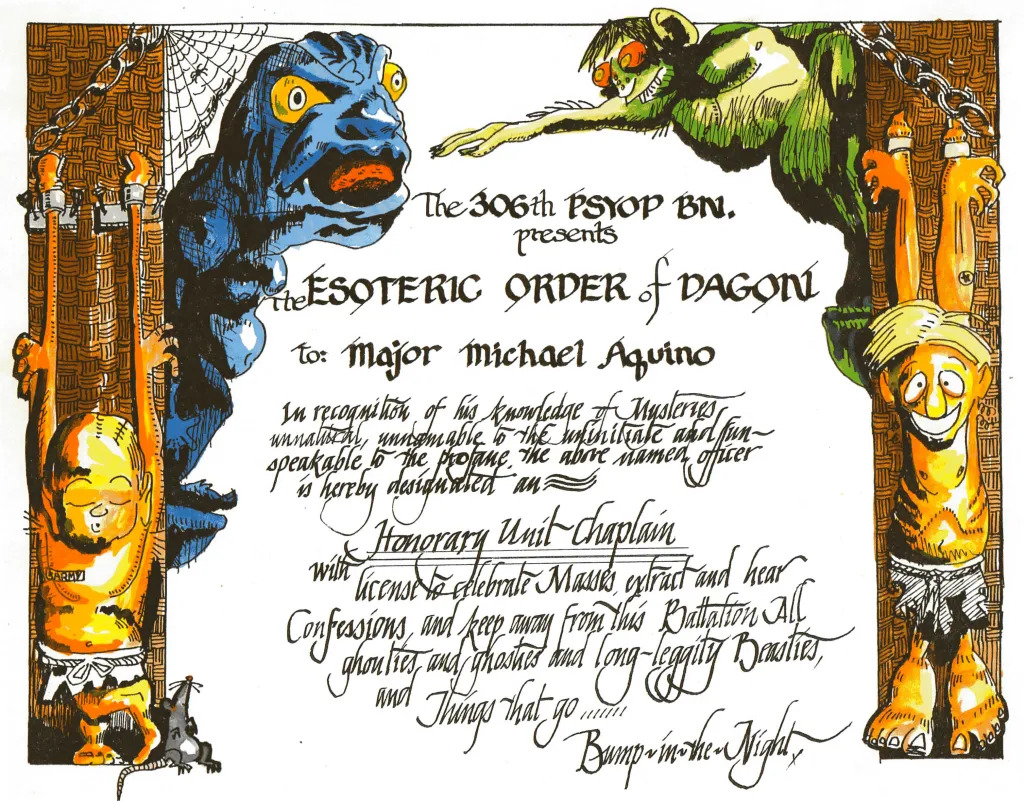 The 306th PSYOP BN.
presents
the ESOTERIC ORDER of DAGON
to: Major Michael Aquino
In recognition of his knowledge of Mysteries
unnatural, unnamable to the uninitiate and un-
speakable to the profane, the above named officer
is hereby designated an
Honorary Unit Chaplain
with
license to celebrate Masses, extract and hear
Confessions, and keep away from this Battalion All
ghoulies, and ghosties and long-leggity Beasties,
and
Things that go ......
Bump-in-the-Night
ARMY